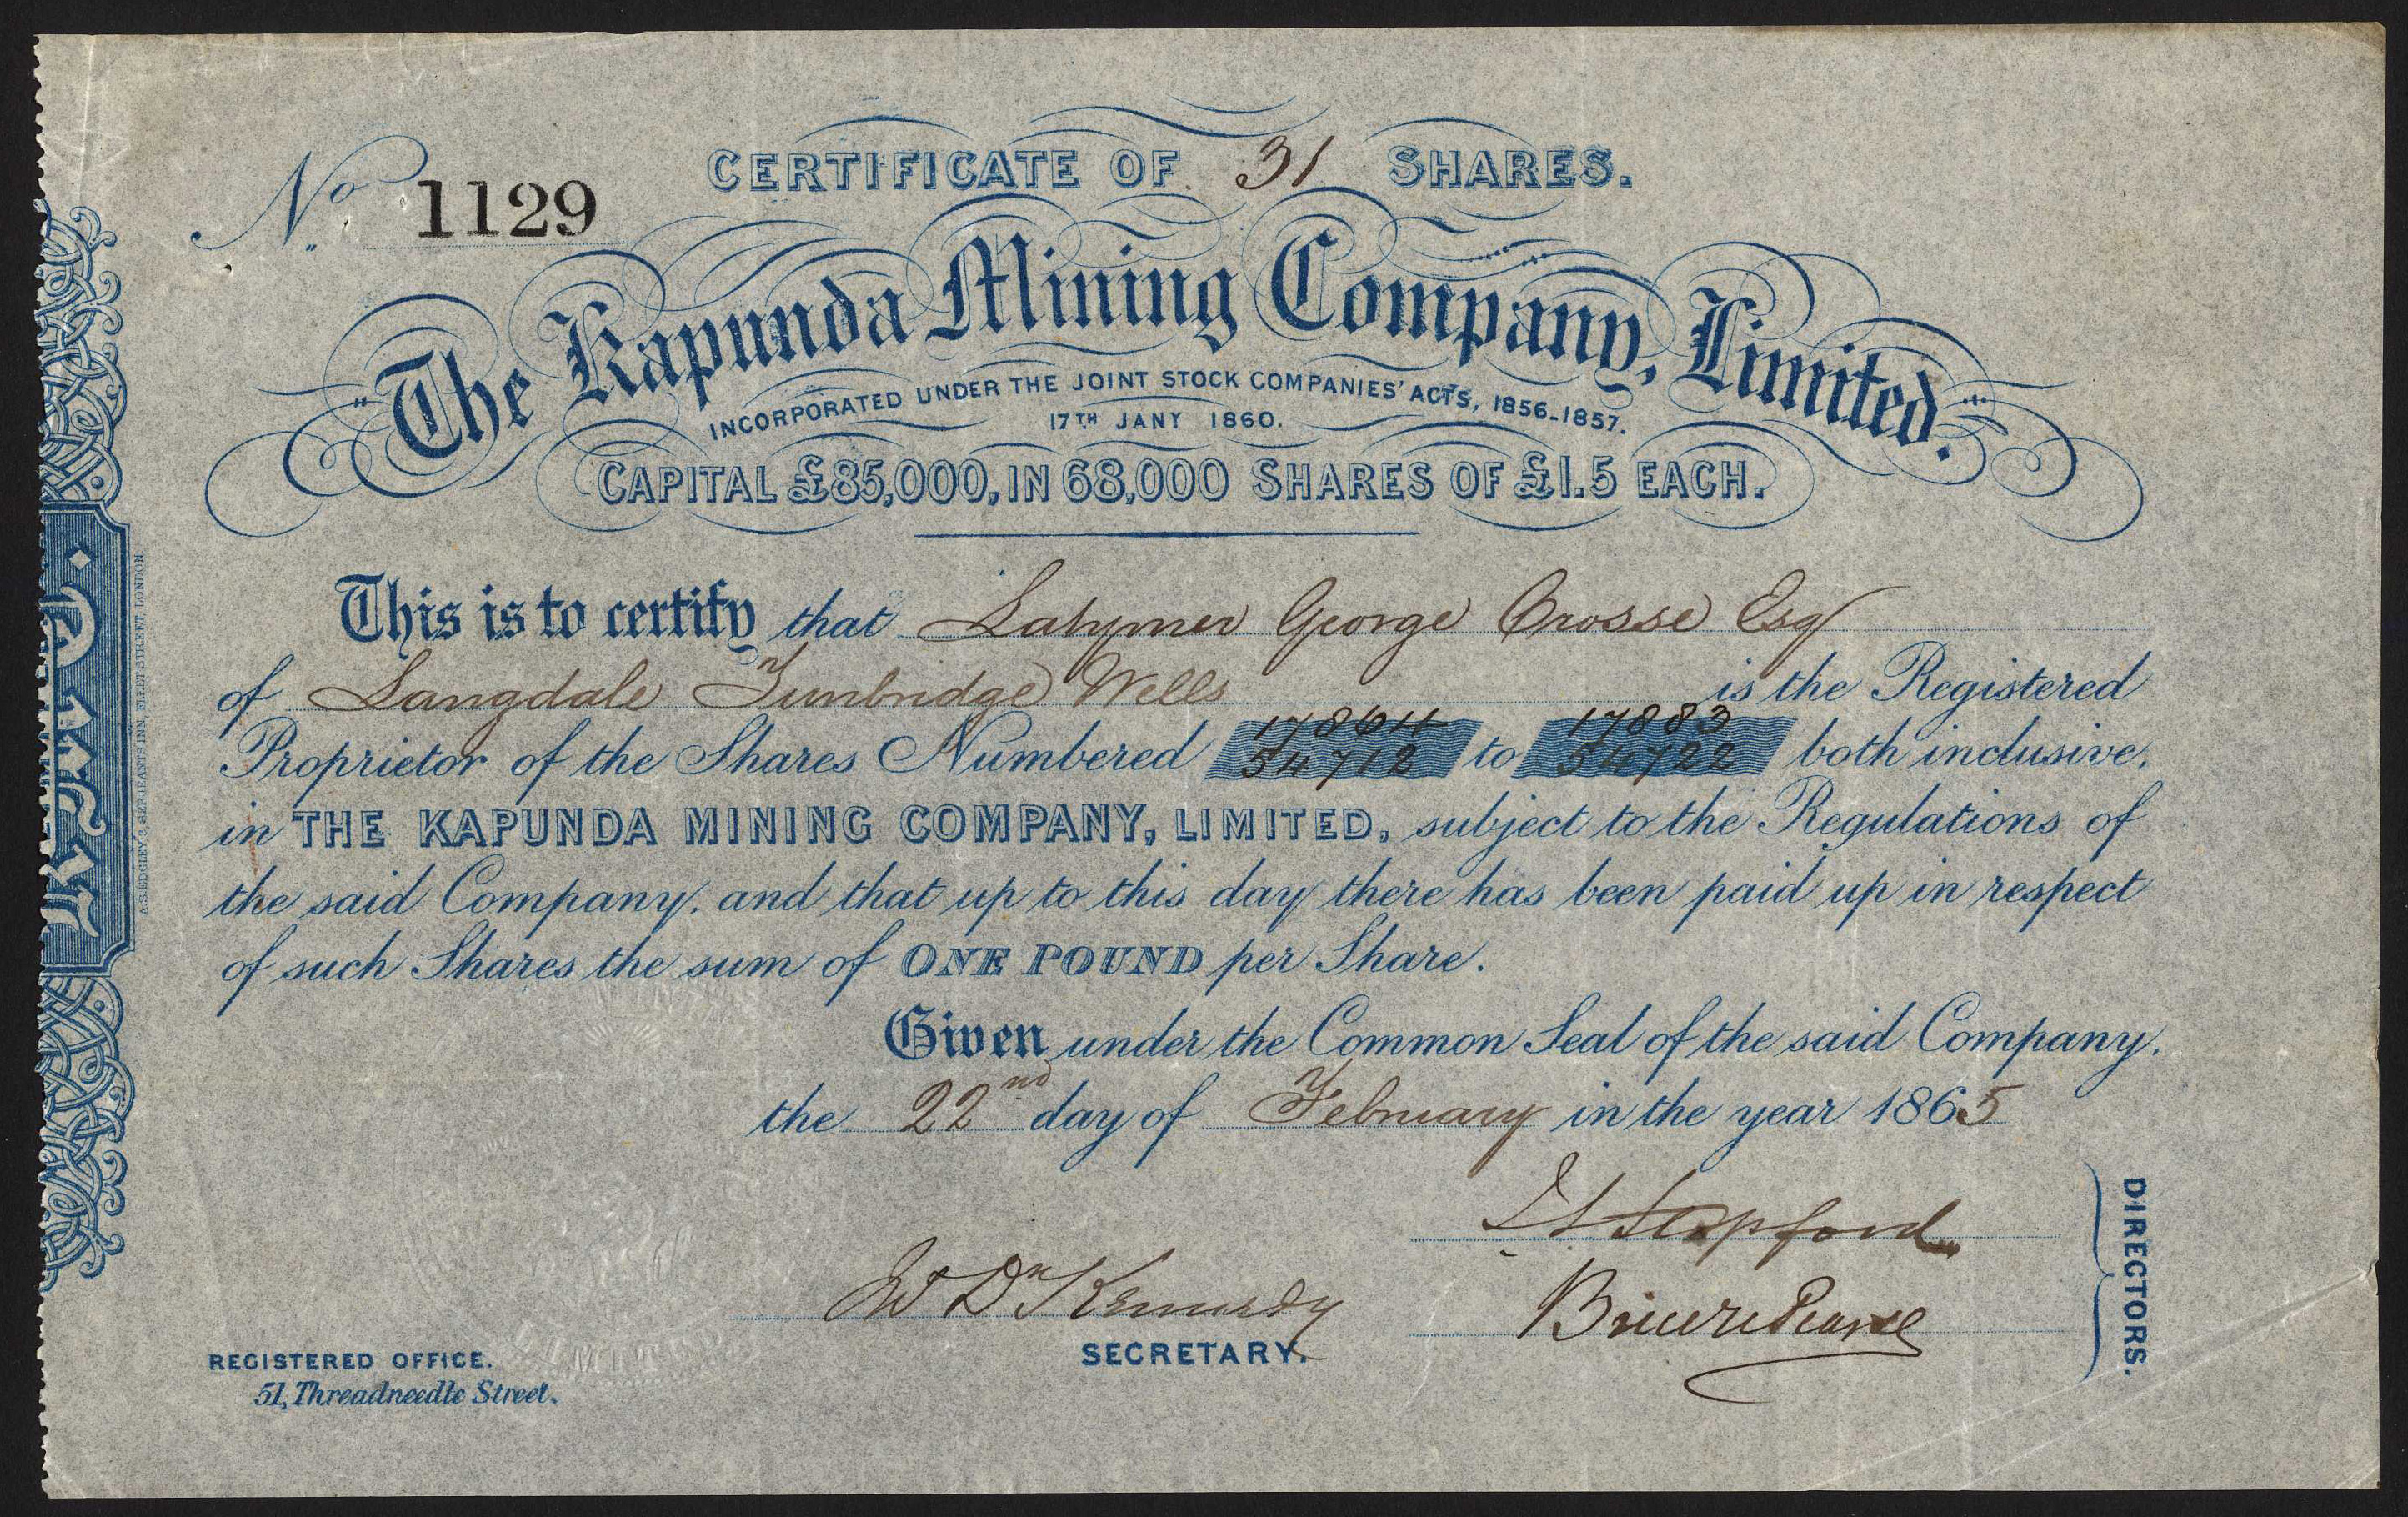 CERTIFICATE OF 31 SHARES.
No 1129
"The Kapunda Mining Company, Limited."
INCORPORATED UNDER THE JOINT STOCK COMPANIES' ACTS, 1856-1857.
17TH JANY 1860.
CAPITAL £85,000, IN 68,000 SHARES OF £1.5 EACH.
This is to certify that Latymer George Crosse Esq
of Langdale Tunbridge Wells is the Registered
17864 17883
Proprietor of the Shares Numbered 54712 to 54722 both inclusive,
in THE KAPUNDA MINING COMPANY, LIMITED, subject to the Regulations of
the said Company, and that up to this day there has been paid up in respect
of such Shares the sum of ONE POUND per Share.
Given under the Common Seal of the said Company,
the 22nd day of February in the year 1865
Stopford
W Dn Kennedy
Briere Pearse
SECRETARY.
DIRECTORS.
REGISTERED OFFICE.
51, Threadneedle Street.
FLEET STREET, LONDON